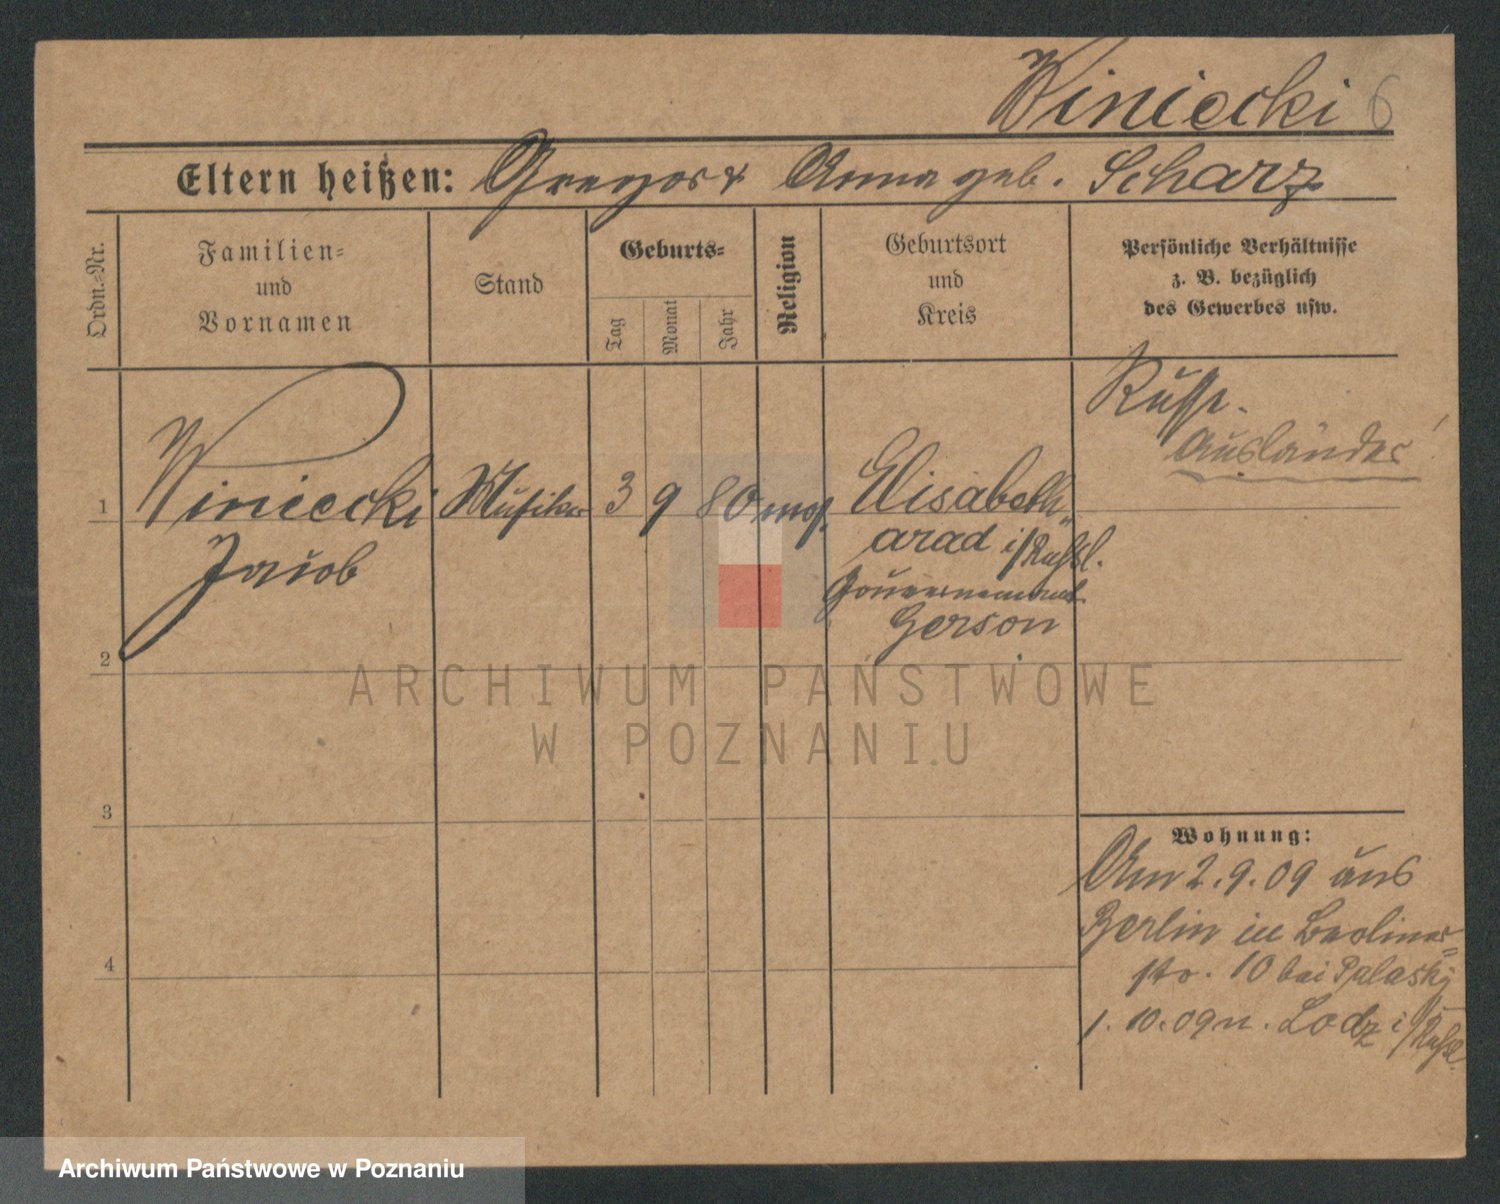 Winiecki 6
Eltern heißen: Gregor & Anna geb. Scharz
Ordn.-Nr.
Familien-
und
Vornamen
Stand
Geburts-
Tag
Monat
Jahr
Religion
Geburtsort
und
Kreis
Persönliche Verhältnisse
z. B. bezüglich
des Gewerbes usw.
Russe.
Ausländer!
1 Winiecki Musiker 3 9 80 mos. Elisabeth
Jacob
arad i/Russl.
Gouvernement
Gerson
2
3
4
Wohnung:
Am 2.9.09 aus
Berlin in Berliner=
str. 10 bei Palasky
1.10.09 n. Lodz i/Russl.
ARCHIWUM PAŃSTWOWE
W POZNANIU
Archiwum Państwowe w Poznaniu